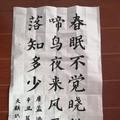 春眠不觉晓
啼鸟夜来风
落知多少
唐孟浩